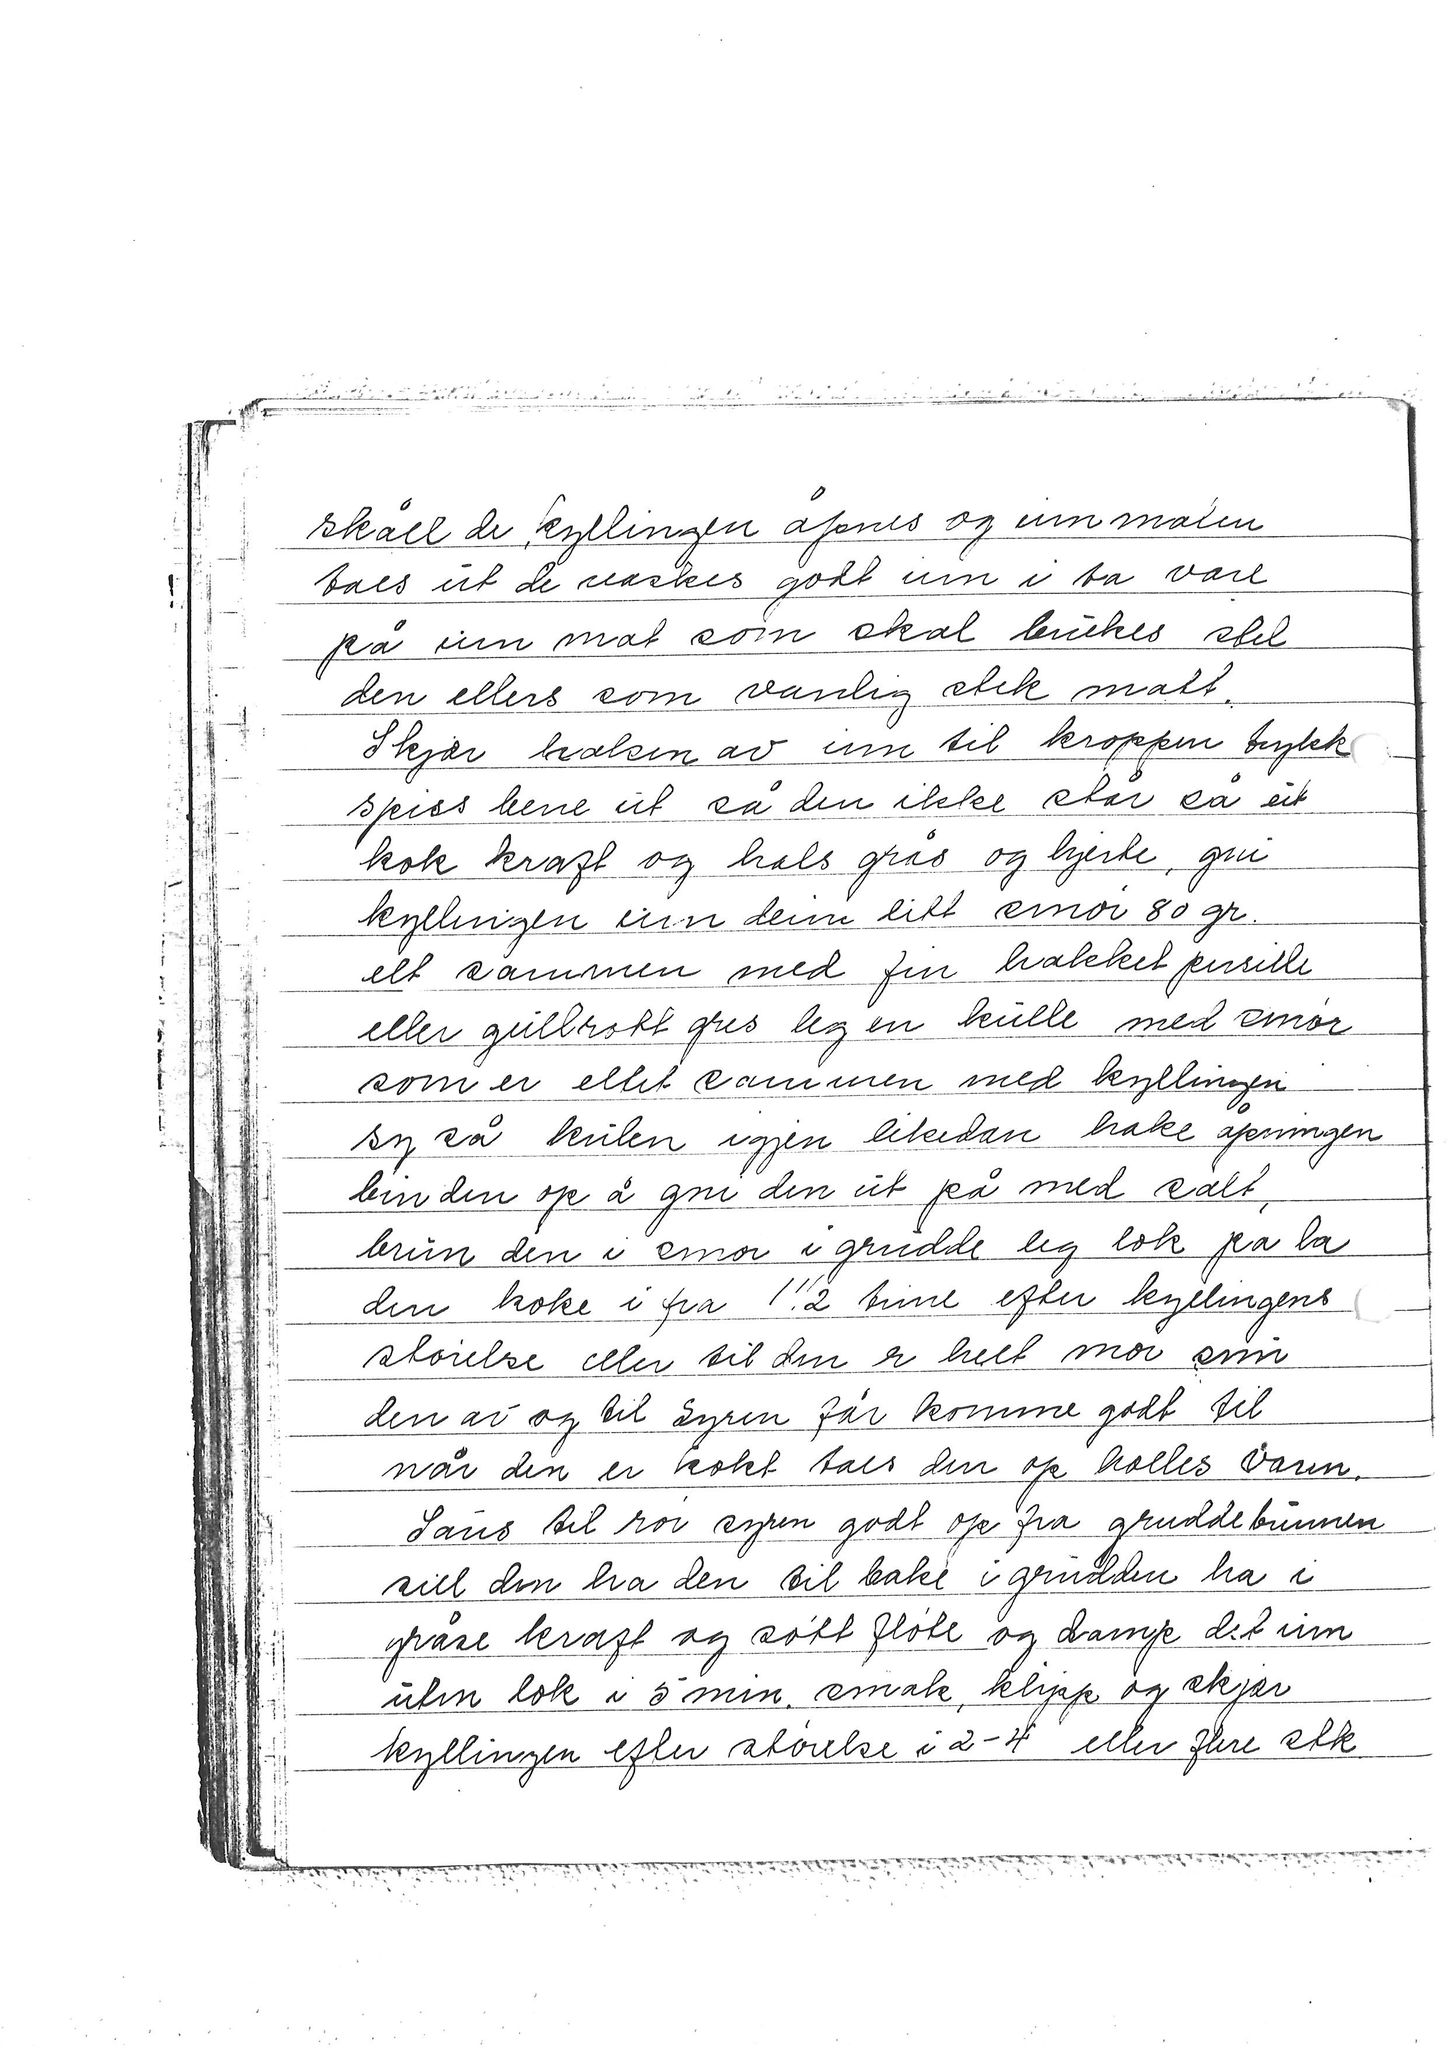 skåll de kyllingen åpnes og inn maten
taes ut de vaskes godt inn i ta vare
på inn mat som skal brukes stel
den ellers som vanlig stek matt.
Skjær halsen av inn til kroppen trykk
spiss bene ut så den ikke står så ut
kok kraft og hals krås og hjerte, gni
kyllingen inn deim litt smør 80 gr.
elt sammen med fin hakket persille
eller gullrott gres leg en kulle med smør
som er elltet sammen med kyllingen
sy så kulen igjen likedan hake åpningen
bin den op å gni den ut på med salt,
brun den i smør i grudde leg lok på la
den koke i fra 1 1/2 time efter kyllingens
størelse eller til den er helt mør snu
den av og til syren får komme godt til
når den er kokt taes den op holles varm.
Saus til rør syren godt op fra gruddebunnen
sill den ha den til bake i grudden ha i
kråse kraft og søtt fløte og damp det inn
uten lok i 5 min. smak, klipp og skjær
kyllingen efter størelse i 2-4 eller flere stk